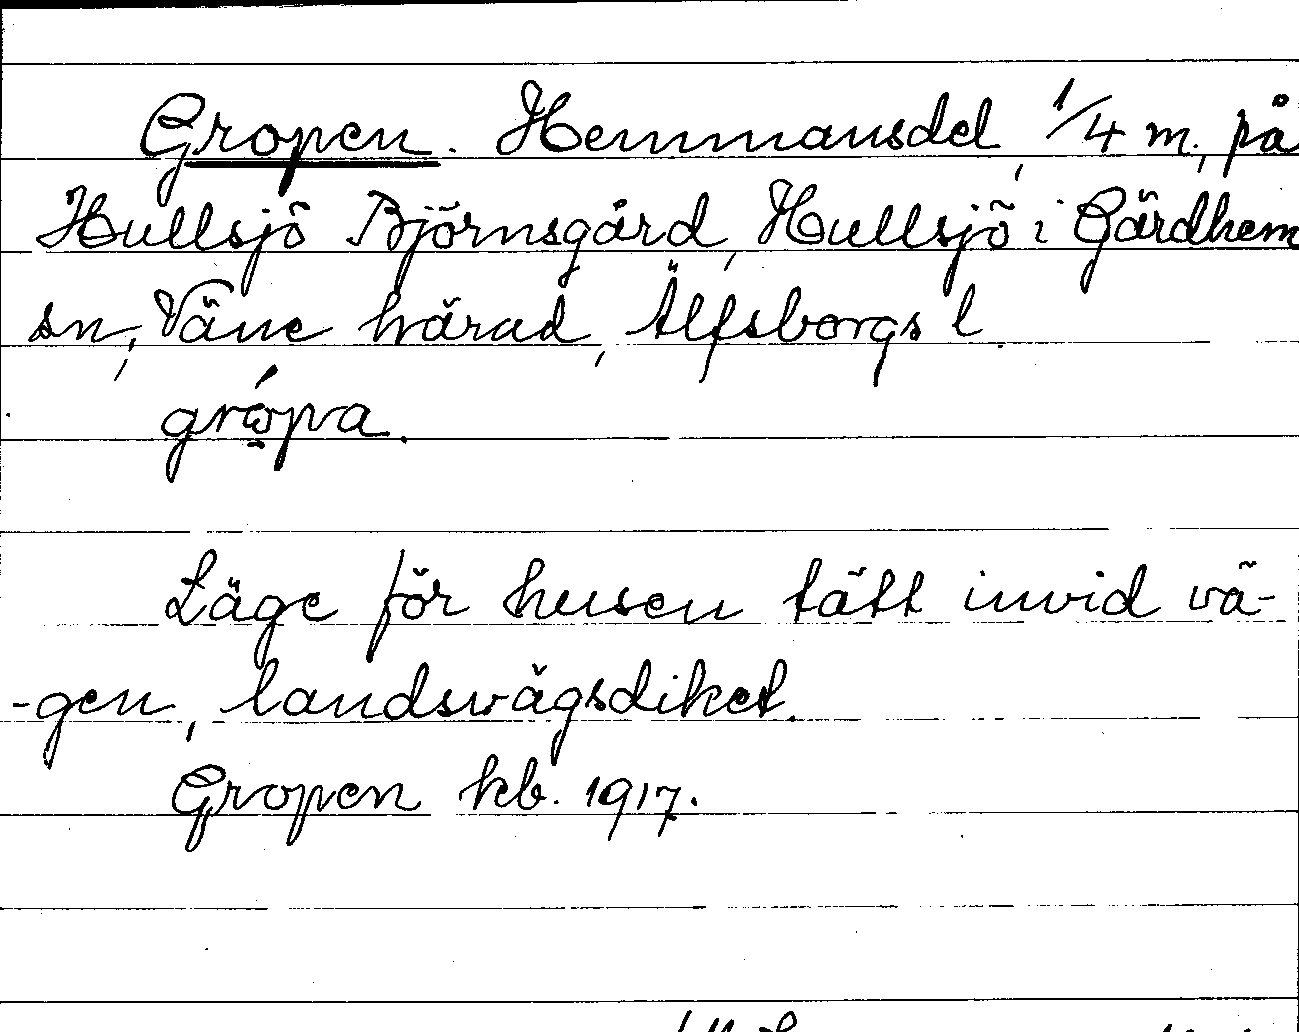 Gropen. Hemmansdel, 1/4 m., på
Hullsjö Björnsgård, Hullsjö i Gärdhem
sn, Väne härad, Älfsborgs l.
Läge för husen tätt invid vä-
-gen, landsvägsdiket.
Gropen kb. 1917.